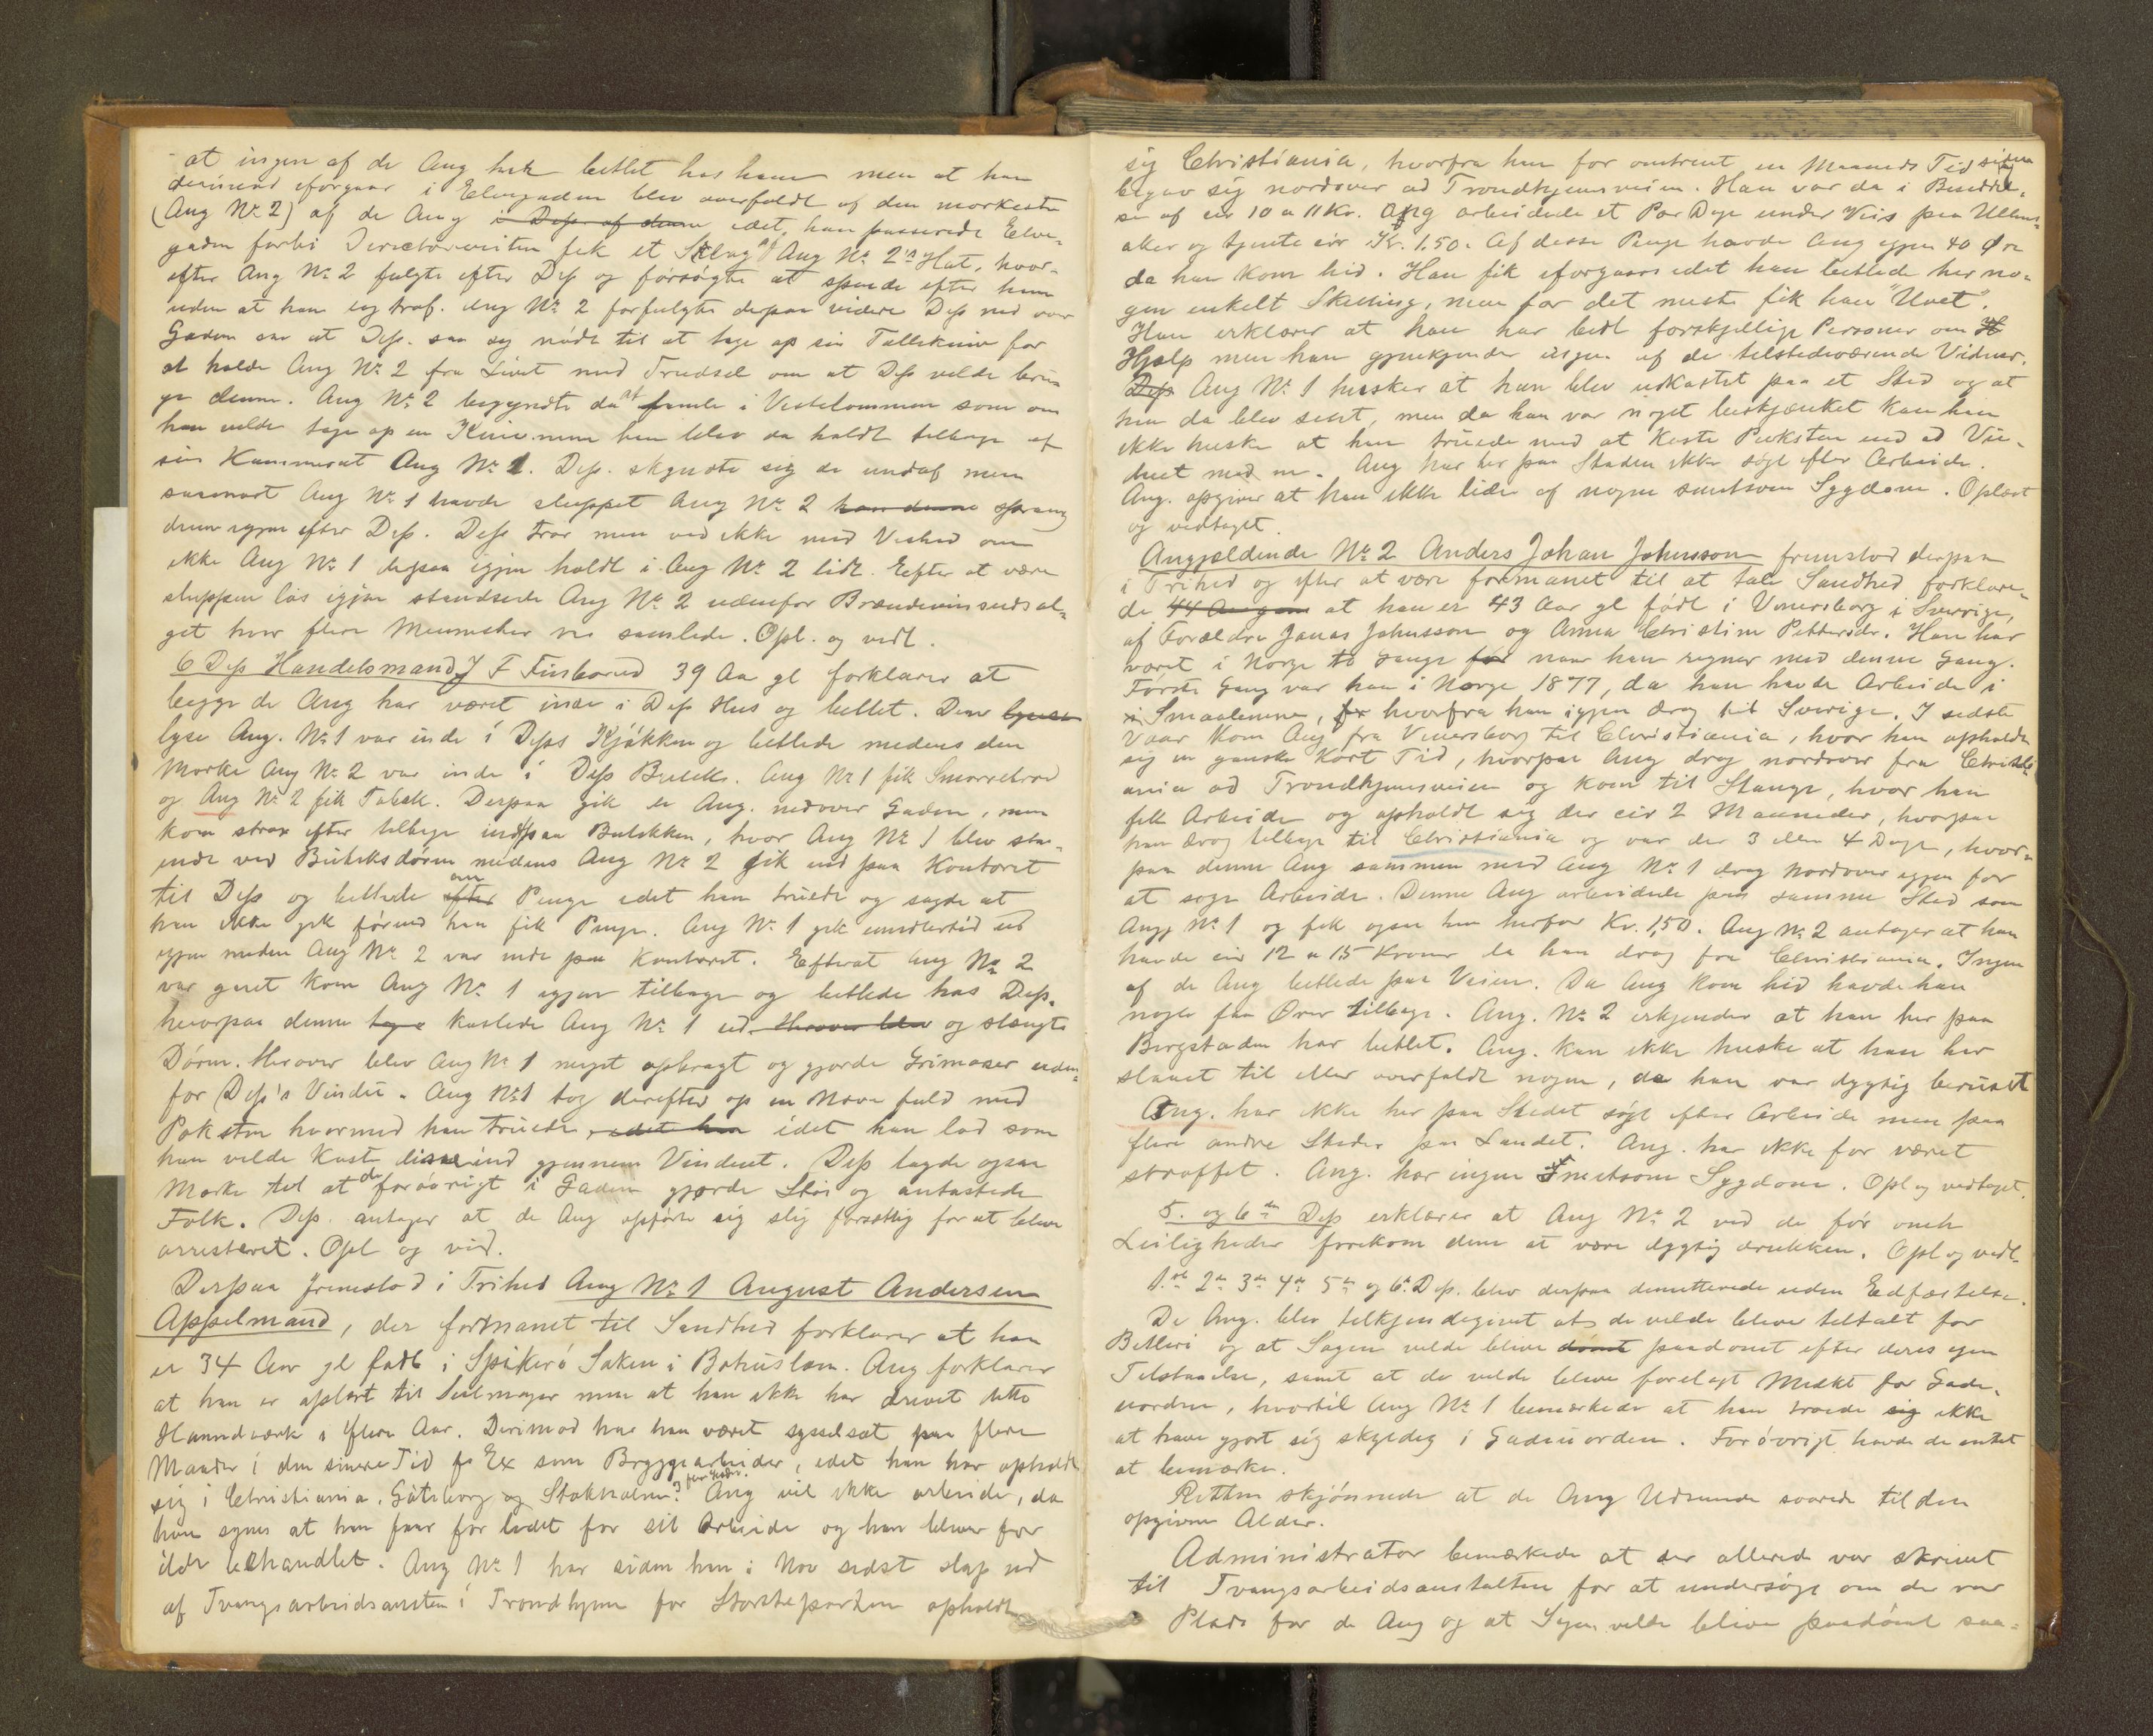 at ingen af de Ang har betlet hos ham men at han
derimod iforgaars i Elvegaden blev overfaldt af den mørkeste
(Ang No 2) af de Ang i Dep af denne idet, han passerede Elve-
gaden forbi Directørveiten fik et Slag af Ang No 2's Hat, hvor-
efter Ang No 2 fulgte efter Dep og forsøgte at spænde efter ham
uden at han dog traf. Ang No 2 forfulgte derpaa videre Dep ned over
Gaden saa at Dep. saa sig nødt til at tage op sin Tollekniv for
at holde Ang No 2 fra Livet med Trudsel om at Dep vilde bru-
ge denne. Ang No 2 begyndte da at famle i Vestelommen som om
han vilde tage op en Kniv men han blev da holdt tilbage af
sin Kammerat Ang No 1. Dep. skyndte sig da undaf men
saasnart Ang No 1 havde sluppet Ang No 2 han denne sprang
denne igjen efter Dep. Dep tror men ved ikke med Vished om
ikke Ang No 1 derpaa igjen holdt i Ang No 2 lidt. Efter at være
sluppen løs igjen standsede Ang No 2 udenfor Brændevinsudsal-
get hvor flere Mennesker var samlede. Opl. og vedt.
6 Dep Handelsmand J F Finborud 39 Aar gl forklarer at
begge de Ang har været inde i Dep Hus og betlet. Den lyse
lyse Ang. No 1 var inde i Deps Kjøkken og betlede medens den
Mørke Ang No 2 var inde i Deps Butik. Ang No 1 fik Smørrebrød
og Ang No 2 fik Tobak. Derpaa gik de Ang. nedover Gaden, men
kom strax efter tilbage ind paa Butikken, hvor Ang No 1 blev sta-
ende ved Butiksdøren medens Ang No 2 gik ind paa Kontoret
til Dep og betlede efter om Penge idet han truede og sagde at
han ikke gik førend han fik Penge. Ang No 1 gik imidlertid ud
igjen meden Ang No 2 var inde paa Kontoret. Efterat Ang No 2
var gaaet kom Ang No 1 igjen tilbage og betlede hos Dep.
hvorpaa denne tog kastede Ang No 1 ud Herover blev og stængte
Døren. Herover blev Ang No 1 meget opbragt og gjorde Grimaser uden-
for Dep's Vindu. Ang No 1 tog derefter op en Næve fuld med
Puksten hvormed han truede, idet han idet han lod som
han vilde kaste disse ind gjennem Vinduet. Dep lagde ogsaa
Mærke til at de forøvrigt i Gaden gjorde Støi og antastede
Folk. Dep. antager at de Ang opførte sig slig forsætlig for at blive
arresteret. Opl og ved.
Derpaa fremstod i Frihed Ang No 1 August Andersen
Appelmand, der formanet til Sandhed forklarer at han
er 34 Aar gl født i Spikerø Soken i Bohuslæn. Ang forklarer
at han er oplært til Seilmager men at han ikke har drevet dette
Haandværk i flere Aar. Derimod har han været sysselsat paa flere
Maader i den senere Tid f. Ex som Bryggearbeider, idet han har opholdt
sig i Christiania, Gøteborg og Stokholm. Ang vil ikke arbeide, da
han synes at han faar for lidet for sit Arbeide og han bliver for
ilde behandlet. Ang No 1 har siden han i Nov sidst slap ud
af Tvangsarbeidsansten i Trondhjem for Størsteparten opholdt
sig Christiania, hvorfra han for omtrent en Maaneds Tid siden
begav sig nordover ad Trondhjemsveien. Han var da i Besiddel-
se af cir 10 a 11 Kr. Ang arbeidede et Par Dage under Veis paa Ullens-
aker og tjente cir Kr. 1.50. Af desse Penge havde Ang igjen 40 Øre
da han kom hid. Han fik iforgaars idet han betlede her no-
gen enkelt Skilling, men for det meste fik han "Uvet".
Han erklærer at han har bedt forskjellige Personer om H
Hjælp men han gjenkjender ingen af de tilstedeværende Vidner.
Dep Ang No 1 husker at han blev udkastet paa et Sted og at
han da blev sint, men da han var noget beskjænket kan han
ikke huske at han truede med at kaste Puksten ind ad Vin-
duet med m. Ang har her paa Staden ikke søgt efter Arbeide.
Ang. opgiver at han ikke lider af nogen smitsom Sygdom. Oplæst
og vedtaget.
Angjældende No 2 Anders Johan Johnsson fremstod derpaa
i Frihed og efter at være formanet til at tale Sandhed forklare-
de 44 Aar gam at han er 43 Aar gl født i Venersborg i Sverrige,
af Forældre Jonas Johnsson og Anna Christine Pettersdr. Han har
været i Norge to Gange før naar han regner med denne Gang.
Første Gang var han i Norge 1877, da han havde Arbeide i
i Smaalenene, fr hvorfra han igjen drog til Sverige. I sidste
Vaar kom Ang fra Venersborg til Christiania, hvor han opholdt
sig en ganske kort Tid, hvorpaa Ang drog nordover fra Christi-
ania ad Trondhjemsveien og kom til Stange, hvor han
fik Arbeide og opholdt sig der cir 2 Maaneder, hvorpaa
han drog tilbage til Christiania og var der 3 eller 4 Dage, hvor-
paa denne Ang sammen med Ang No 1 drog nordover igjen for
at søge Arbeide. Denne Ang arbeidede paa samme Sted som
Ang No 1 og fik ogsaa han herfor Kr. 1,50. Ang No 2 antager at han
havde cir 12 a 15 Kroner da han drog fra Christiania. Ingen
af de Ang betlede paa Veien. Da Ang kom hid havde han
nogle faa Ører tilbage. Ang. No 2 erkjender at han her paa
Bergstaden har betlet. Ang. kan ikke huske at han har
slaaet til eller overfaldt nogen, da han var dygtig beruset
Ang. har ikke her paa Stedet søgt efter Arbeide men paa
flere andre Steder paa Landet. Ang. har ikke før været
straffet. Ang. har ingen smitsom Sygdom. Opl og vedtaget.
5. og 6te Dep erklærer at Ang No 2 ved de før omh
Leiligheder forekom dem at være dygtig drukken. Opl og vedt.
1ste 2de 3de 4de 5te og 6te Dep. blev derpaa demitterede uden Edfæstelse.
De Ang. blev tilkjendegivet at de vilde blive tiltalt for
Betleri og at Sagen vilde blive dømt paadømt efter deres egen
Tilstaaelse, samt at de vilde blive forelagt Mulkt for Gade-
uorden, hvortil Ang No 1 bemærkede at han troede sig ikke
at have gjort sig skyldig i Gadeuorden. Forøvrigt havde de intet
at bemærke.
Retten skjønnede at de Ang Udseende svarede til den
opgivne Alder.
Administrator bemærkede at der allerede var skrevet
til Tvangsarbeidsanstalten for at undersøge om der var
Plads for de Ang og at Sagen vilde blive paadømt saa-